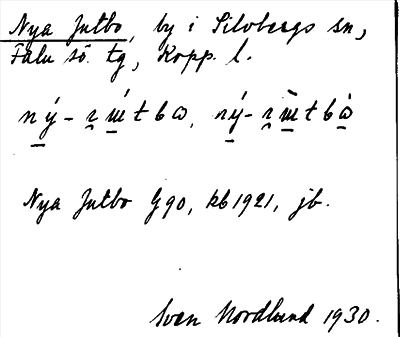 Nya Jutbo, by i Silvbergs sn,
Falu sö. tg, Kopp. l.
Nya Jutbo Gg0, kb 1921, jb.
Sven Nordlund 1930.